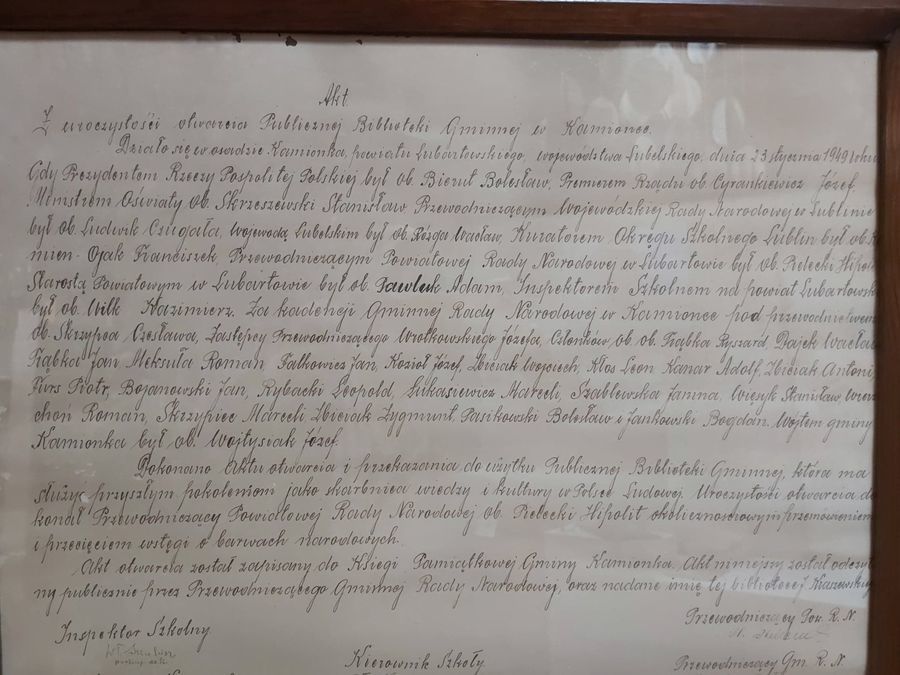 Akt
z uroczystości otwarcia Publicznej Biblioteki Gminnej w Kamionce.
Działo się w osadzie Kamionka, powiatu Lubartowskiego, województwa Lubelskiego, dnia 23 stycznia 1949 roku
Gdy Prezydentem Rzeczy Pospolitej Polskiej był ob. Bierut Bolesław, Premierem Rządu ob. Cyrankiewicz Józef,
Ministrem Oświaty ob. Skrzeszewski Stanisław, Przewodniczącym Wojewódzkiej Rady Narodowej w Lublinie
był ob. Ludwik Czugała, Wojewodą Lubelskim był ob. Rózga Wacław, Kuratorem Okręgu Szkolnego Lublin był ob.
mien-Ojak Franciszek, Przewodniczącym Powiatowej Rady Narodowej w Lubartowie był ob. Pielecki Hipolit
Starostą Powiatowym w Lubartowie był ob. Pawluk Adam, Inspektorem Szkolnem na powiat Lubartowski
był ob. Wilk Kazimierz. Za kadencji Gminnej Rady Narodowej w Kamionce pod przewodnictwem
ob. Skrzypca Czesława, Zastępcy Przewodniczącego Wrotkowskiego Józefa, Członków ob. ob. Frąbka Ryszard, Dajek Wacław
Frąbka Jan, Meksuła Roman, Falkowicz Jan, Kozioł Józef, Zbiciak Wojciech, Kłos Leon, Kanar Adolf, Zbiciak Antoni,
Kurs Piotr, Bojanowski Jan, Rybacki Leopold, Łukasiewicz Marceli, Szablewska Janina, Więsyk Stanisław,
choń Roman, Skrzypiec Marceli, Zbiciak Zygmunt, Pasikowski Bolesław i Jankowski Bogdan. Wójtem gminy
Kamionka był ob. Wojtysiak Józef.
Dokonano Aktu otwarcia i przekazania do użytku Publicznej Biblioteki Gminnej, która ma
służyć przyszłym pokoleniom jako skarbnica wiedzy i kultury w Polsce Ludowej. Uroczystości otwarcia do
konał Przewodniczący Powiatowej Rady Narodowej ob. Pielecki Hipolit okolicznościowym przemówieniem
i przecięciem wstęgi o barwach narodowych.
Akt otwarcia został zapisany do Księgi Pamiątkowej Gminy Kamionka. Akt niniejszy został odczyta
ny publicznie przez Przewodniczącego Gminnej Rady Narodowej, oraz nadane imię tej bibliotece J. Kraszewskiego
Przewodniczący Pow. R. N.
Inspektor Szkolny
Kierownik Szkoły
Przewodniczący Gm. R. N.